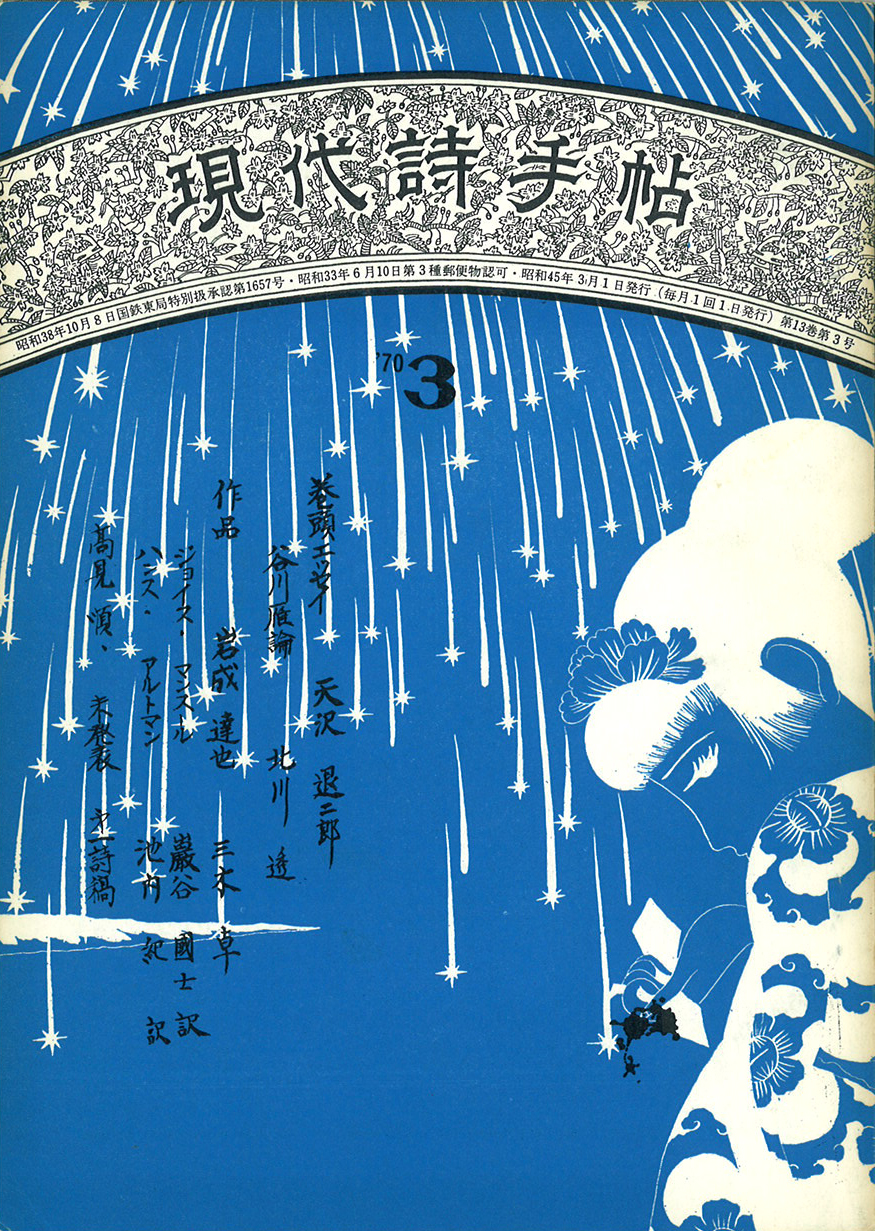 現代詩手帖
昭和38年10月8日国鉄東局特別扱承認第1657号・昭和33年6月10日第3種郵便物認可・昭和45年3月1日発行(毎月1回1日発行)第13巻第3号
'70 3
巻頭エッセイ 天沢 退二郎
谷川雁論 北川 透
作品 岩成 達也 三木 卓
ジョイス・マンスール 巖谷 國士 訳
ハンス・アルトマン 池内 紀 訳
高見 順・未発表 詩稿